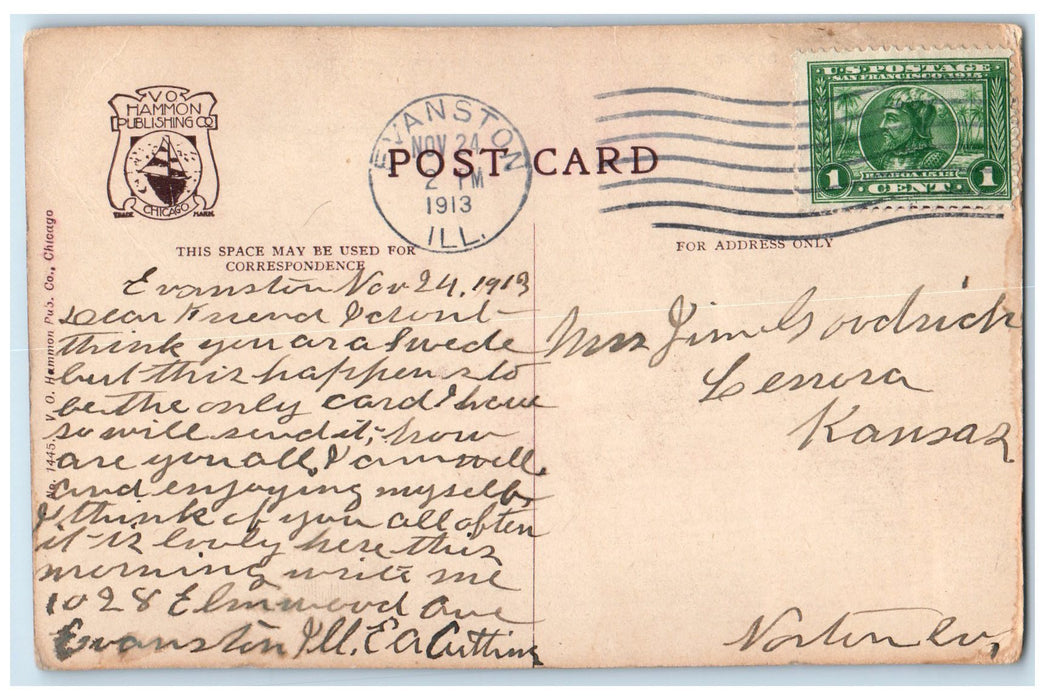 V O
HAMMON
PUBLISHING CO
CHICAGO
TRADE MARK
EVANSTON
NOV 24
2 PM
1913
ILL.
POST CARD
U·S·POSTAGE
SAN FRANCISCO 1915
BALBOA 1513
1 CENT 1
THIS SPACE MAY BE USED FOR
CORRESPONDENCE
FOR ADDRESS ONLY
No. 1445. V. O. Hammon Pub. Co., Chicago
Evanston Nov 24, 1913
Dear Friend I dont
think you are a Swede
but this happens to
be the only card I have
so will send it; how
are you all, I am well
and enjoying myself,
I think of you all often
it is lovly here this
morning write me
1028 Elmwood Ave
Evanston Ill. E A Cutting
Mrs Jim Goodrich
Lenora
Kansas
Norton Co.,